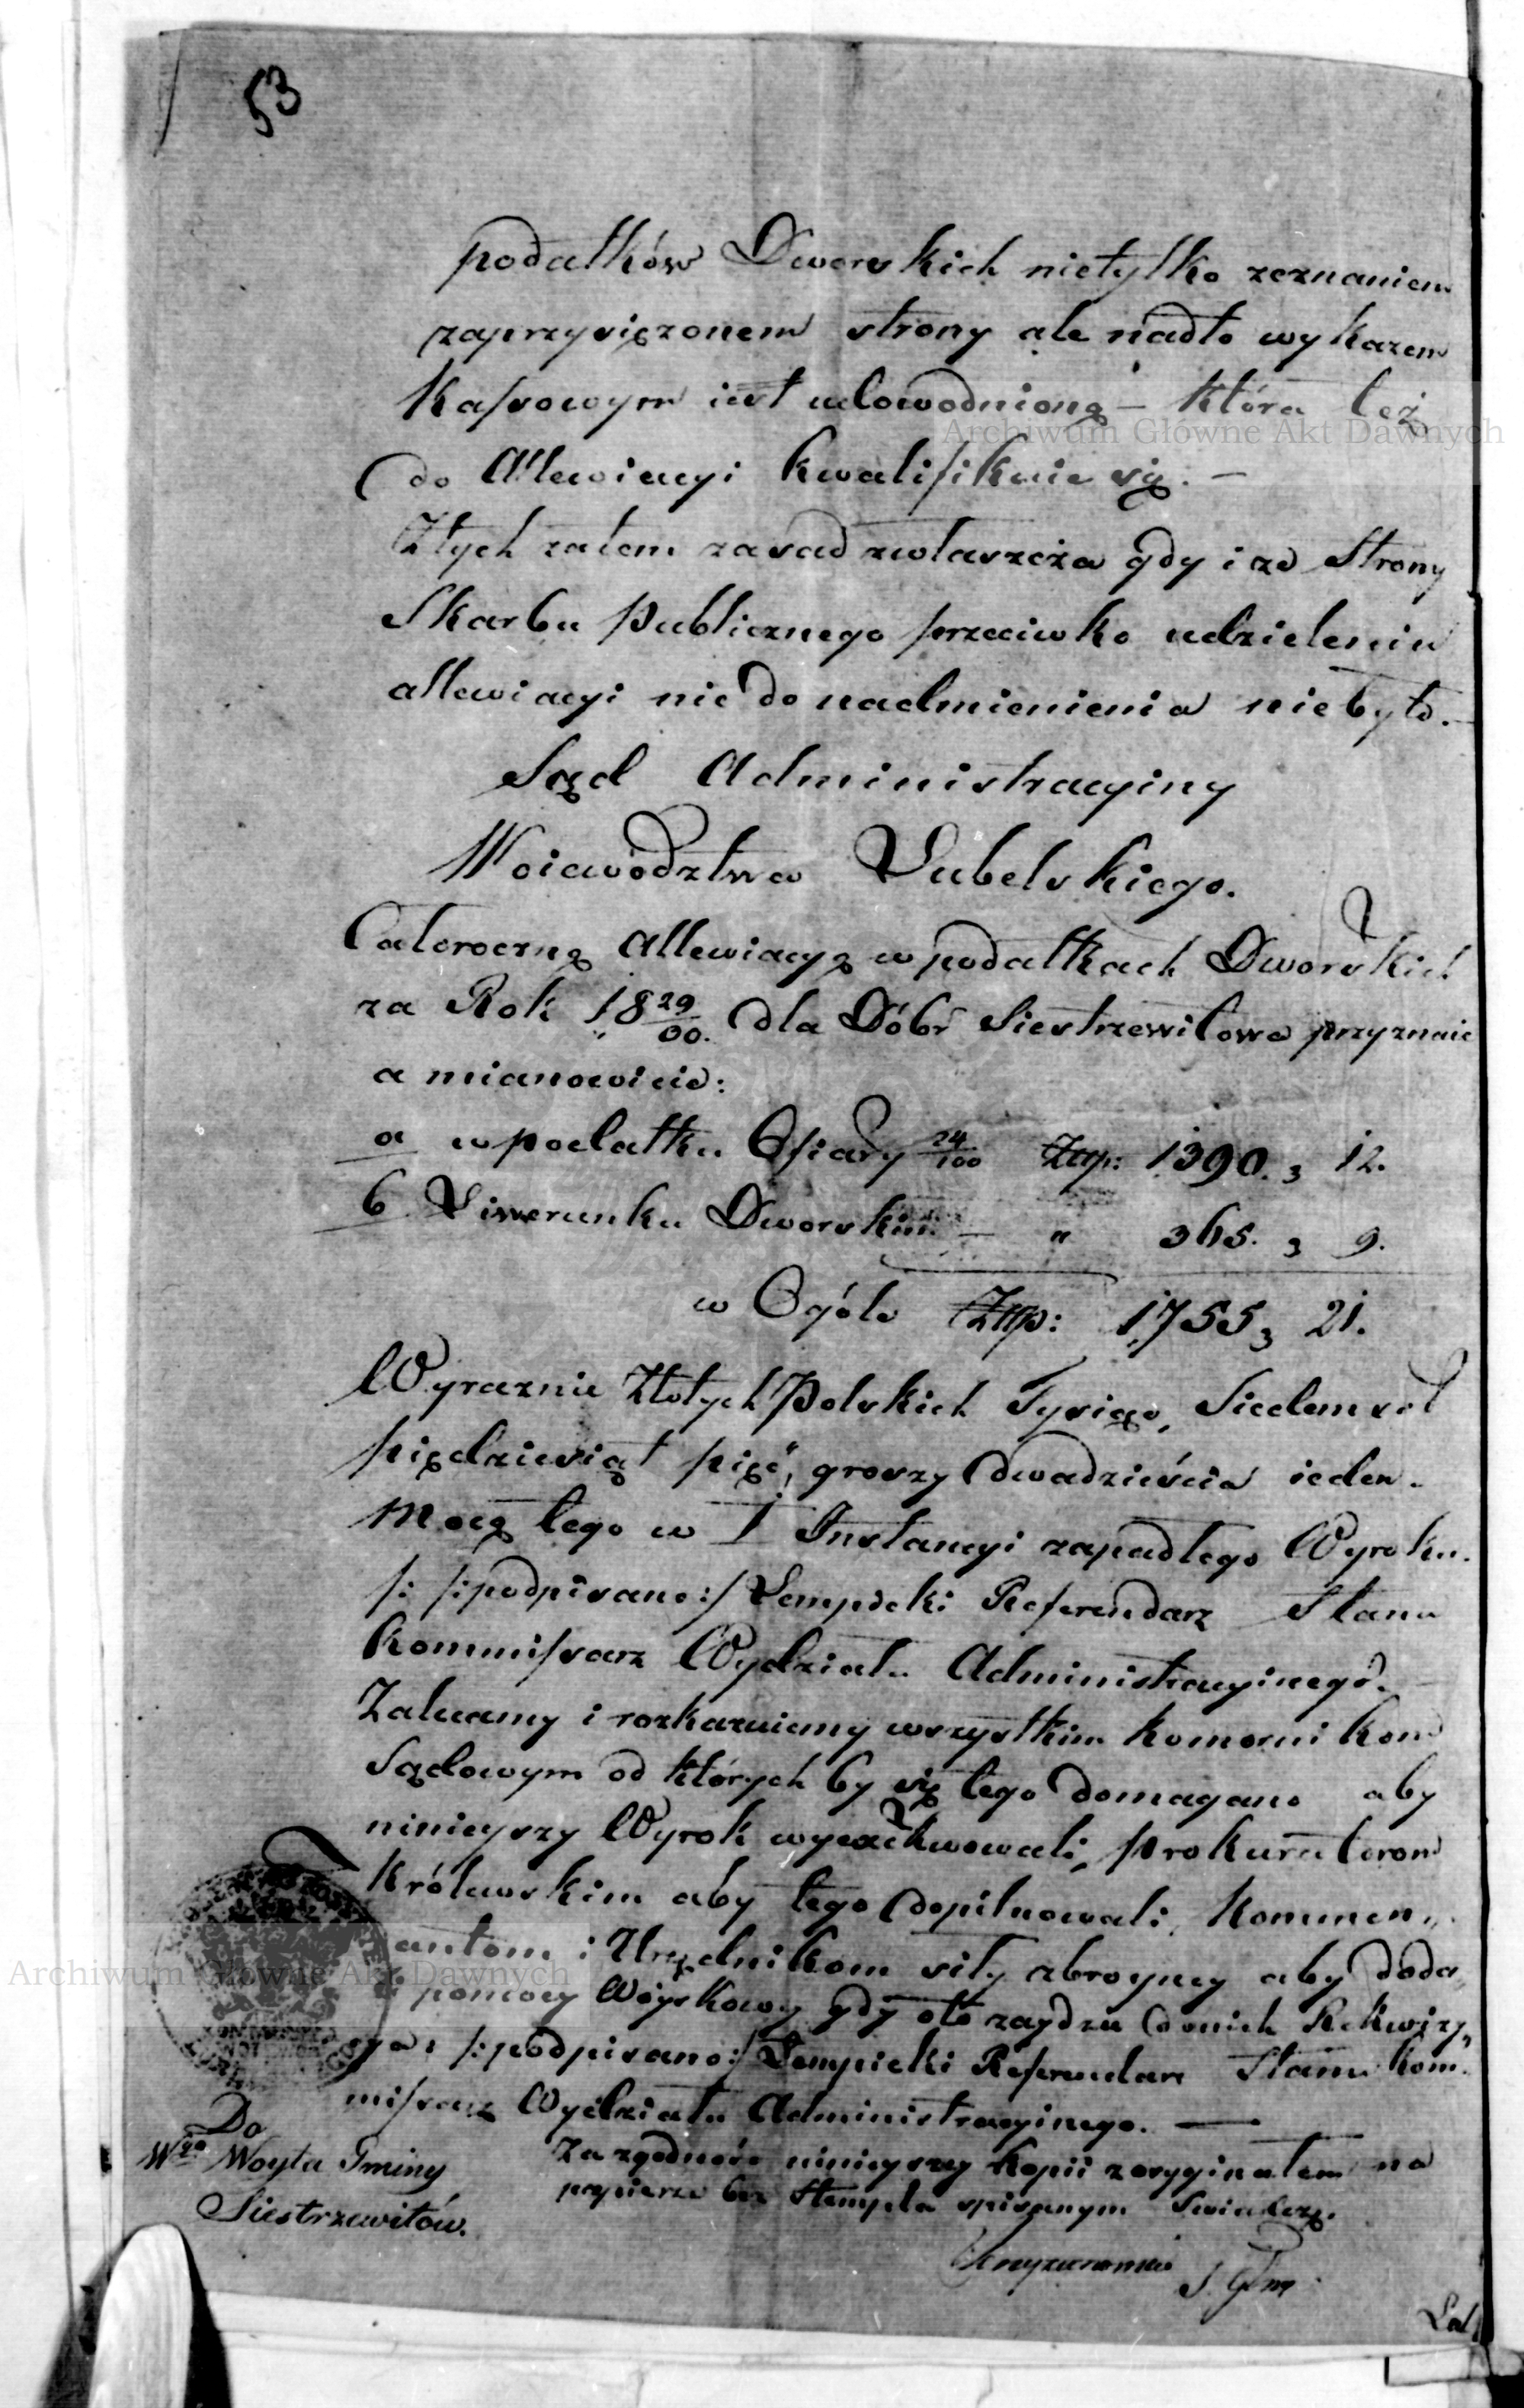 53
podatków Dworskich nietylko zeznaniem
zaprzysiężonem strony ale nadto wykazem
Kassowym iest udowodnioną – która też
do Allewiacyi kwalifikuie się. –
Ztych zatem zasad zwłaszcza gdy i ze Strony
Skarbu Publicznego przeciwko udzieleniu
allewiacyi nic do nadmienienia niebyło. –
Sąd Administracyiny
Woiewództwa Lubelskiego.
Całoroczną Allewiacyą w podatkach Dworskich
za Rok 18 29/30. dla Dóbr Siestrzewitowa przyznaie
a mianowicie:
a w podatku Ofiary 24/100 Złp: 1390. 3 12.
b Liwerunku Dworskim – " 365. 3 9.
w Ogóle Złp: 1,755 3 21.
Wyraznie Złotych Polskich Tysiąc, Siedemset
pięćdziesiąt pięć, groszy dwadzieścia ieden.
Mocą tego w I Instancyi zapadłego Wyroku.
/: /:podpisano:/ Lempicki Referendarz Stanu
Kommissarz Wydziału Administracyinego. –
Zalecamy i rozkazuiemy wszystkim Komornikom
Sądowym od których by się tego domagano aby
ninieyszy Wyrok wyexekwowali, Prokuratorom
Królewskim aby tego dopilnowali, Kommen„
antom i Urzędnikom siły zbroyney aby doda„
pomocy Woyskowey gdy oto zaydzie do nich Rekwizy„
cya: /:podpisano:/ Lempicki Referendarz Stanu Kom„
missarz Wydziału Administracyinego. —
Za zgodność ninieyszey kopii z oryginałem na
papierze bez Stempla spisanym Swiadczę.
Do
Wgo Woyta Gminy
Siestrzewitów.
Archiwum Główne Akt Dawnych
Archiwum Główne Akt Dawnych